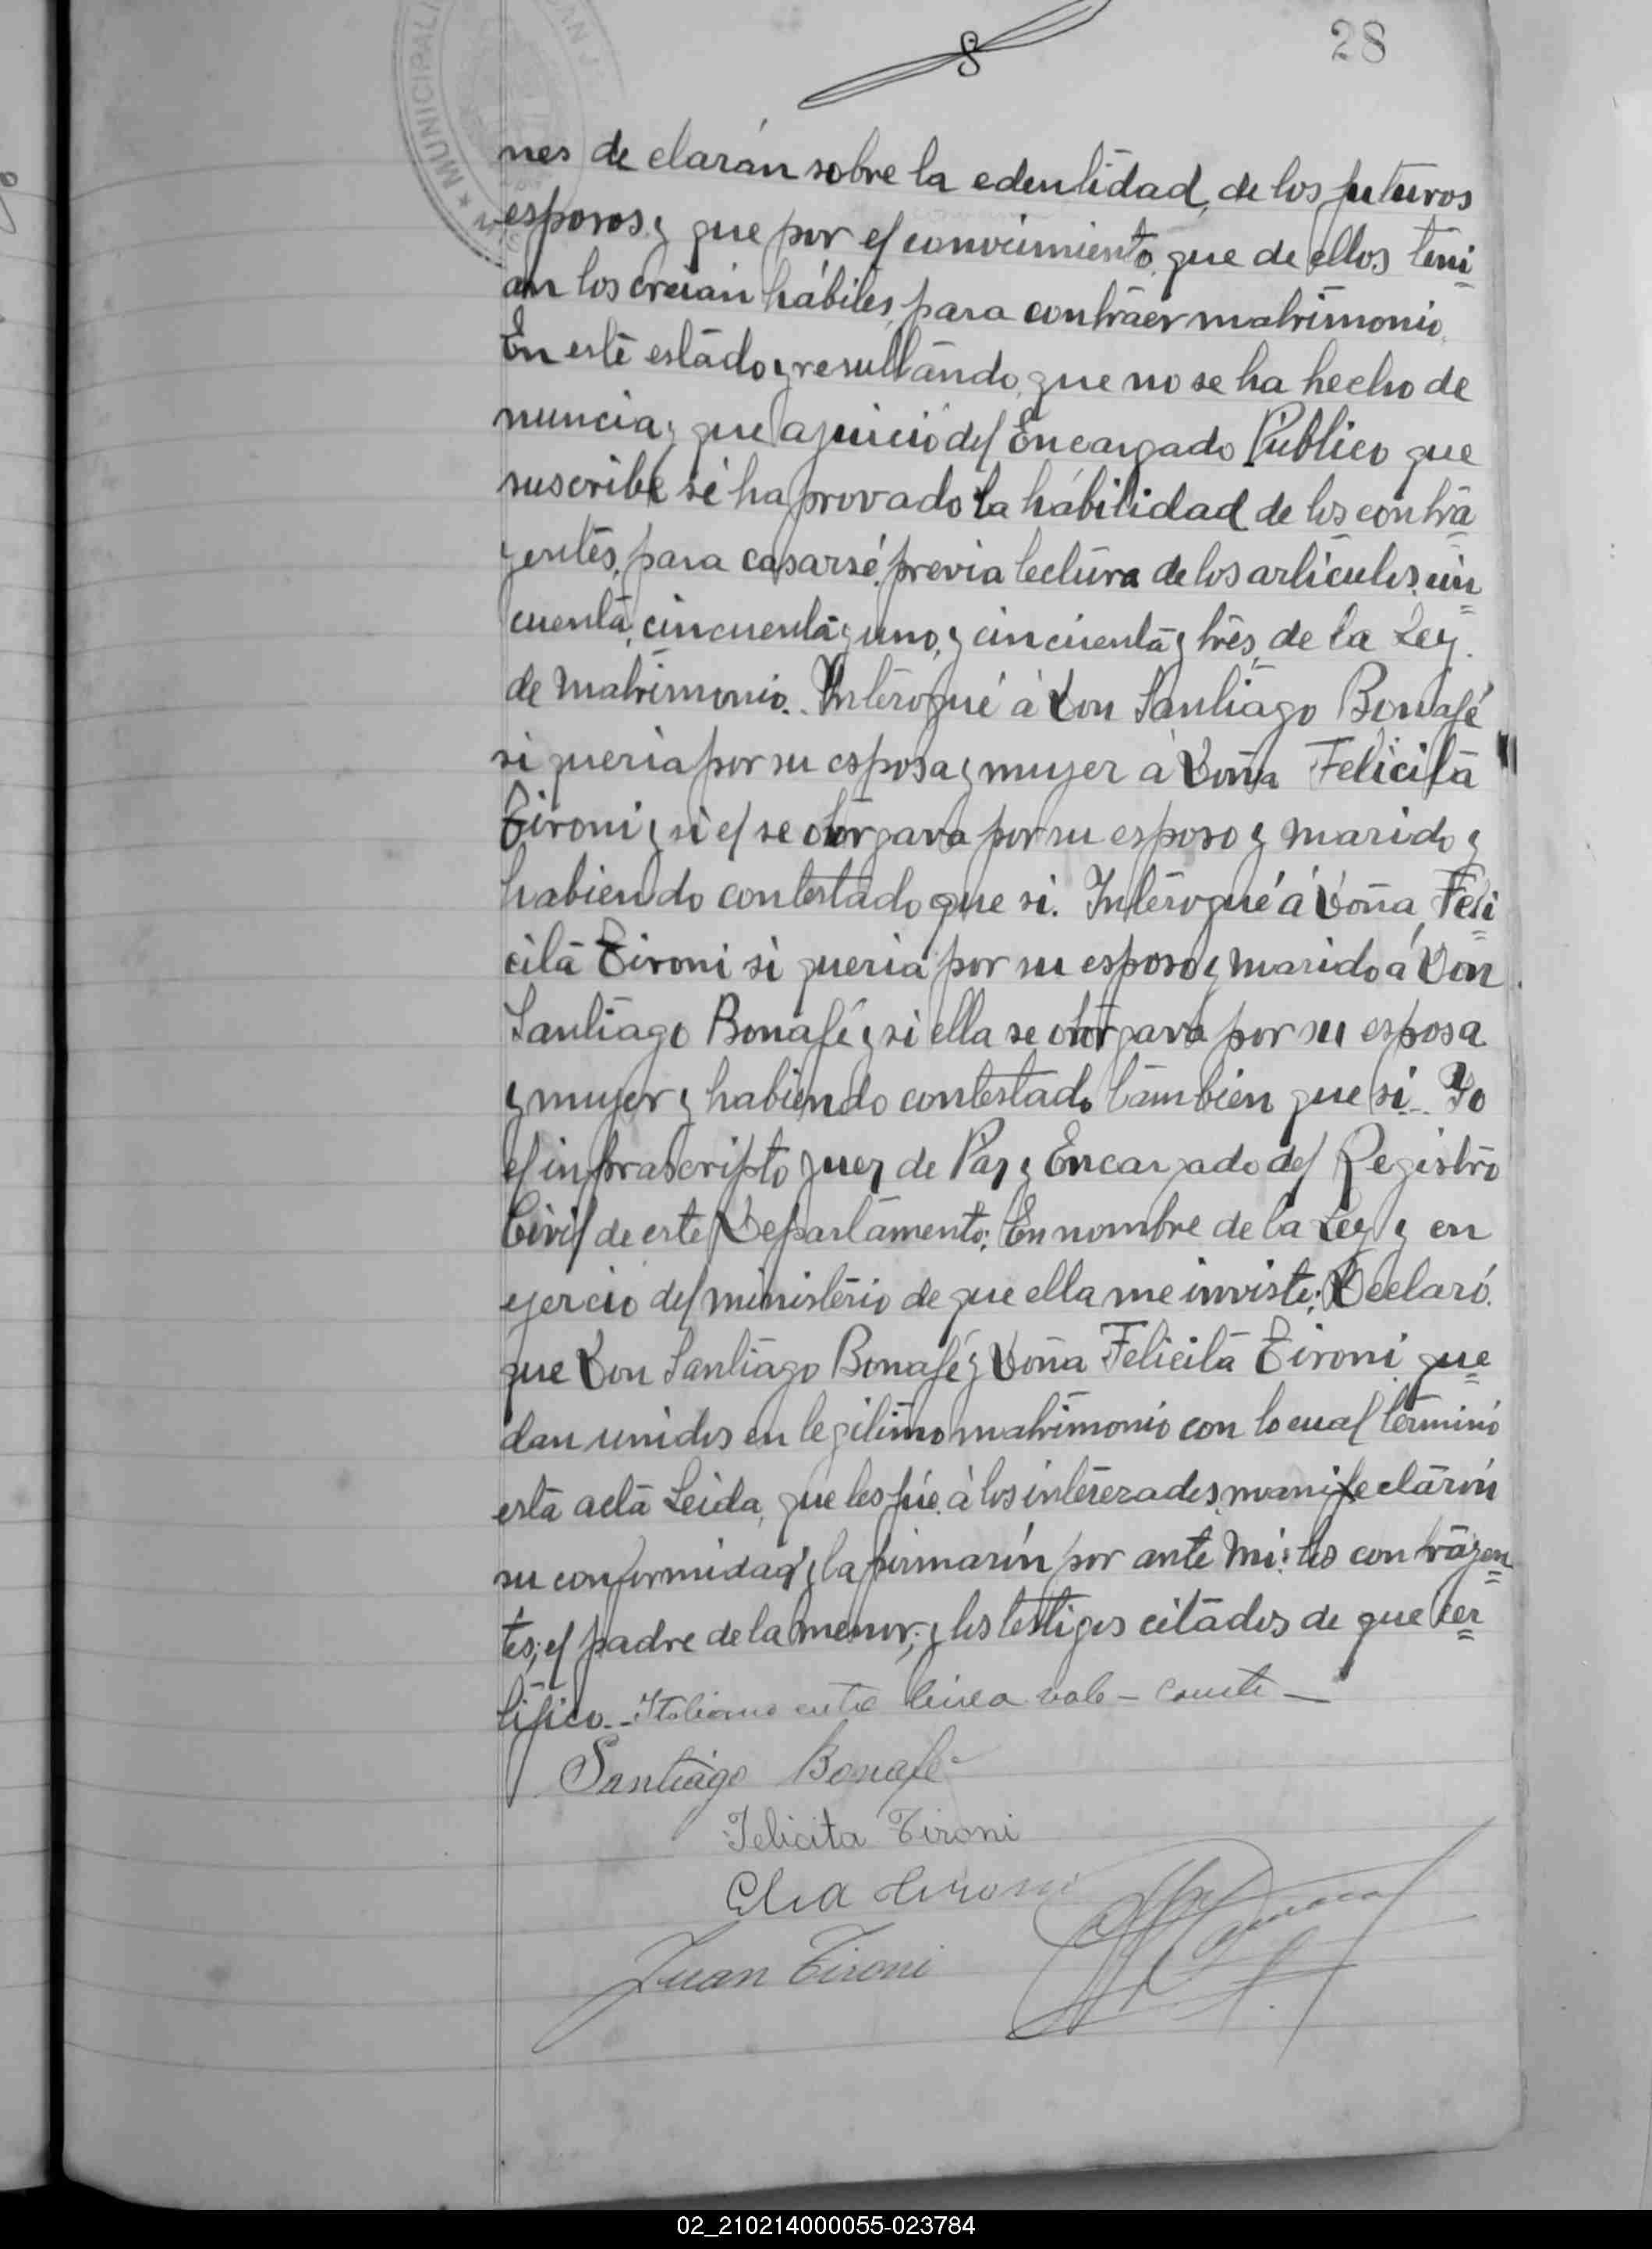 28
8
MUNICIPALI
nes de clarán sobre la edentidad, de los futuros
esposos y que por el conocimiento, que de ellos teni
an los creian hábiles, para contraer matrimonio.
En este estado y resultando, que no se ha hecho de
nuncia y que a juicio del Encargado Público que
suscribe se ha provado la hábilidad de los contra
yentes, para casarse, previa lectura de los articulos, cin
cuenta, cincuenta y uno, y cincuenta y tres, de la Ley.
de Matrimonio. Interogué á Don Santiago Bonafé
si queria por su esposa y mujer á Doña Felicita
Tironi y si el se otorgava por su esposo y marido y
habiendo contestado que si. Interogué á Doña, Feli
cita Tironi si queria por su esposo y marido á Don
Santiago Bonafé y si ella se otorgava por su esposa
y mujer y habiendo contestado tambien que si. Yo
el infrascripto Juez de Paz y Encargado del Registro
Civil de este Departamento; En nombre de la Ley y en
ejercio del ministerio de que ella me inviste; Declaró.
que Don Santiago Bonafé y Doña Felicita Tironi, que
dan unidos en legitimo matrimonio con lo cual terminó
esta acta Leida, que les fúe á los interezados, manifectarón
su conformidad y la firmarón por ante Mi: los contrayen
tes; el padre de la menor; y los testigos citados de que cer
tifico.- Italiano entre linea vale - Conste -
Santiago Bonafé
Felicita Tironi
Elia Tironi
Juan Tironi
02_210214000055-023784